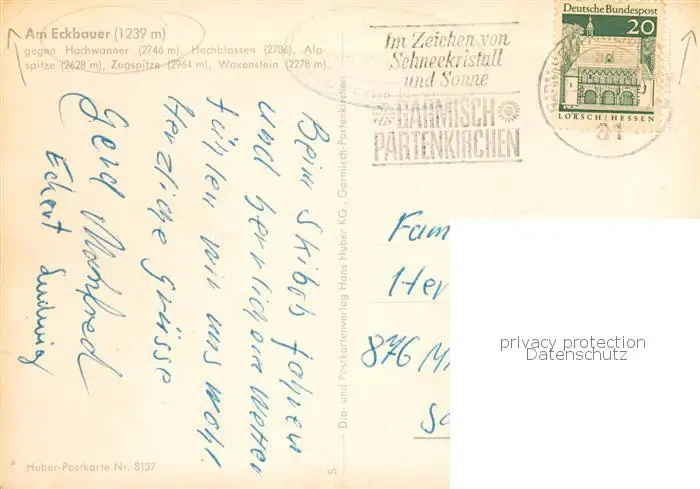 Am Eckbauer (1239 m)
gegen Hochwanner (2746 m), Hochblassen (2706), Alp-
spitze (2628 m), Zugspitze (2964 m), Waxenstein (2278 m)
Beim Skibob fahren
und herrlichem Wetter
fühlen wir uns wohl.
Herzliche Grüsse
Gerd Manfred
Eckart Ludwig
Huber-Postkarte Nr. 8137
Dia- und Postkartenverlag Hans Huber KG., Garmisch-Partenkirchen
S
Im Zeichen von
Schneekristall
und Sonne
GARMISCH
PARTENKIRCHEN
Deutsche Bundespost
20
LORSCH/HESSEN
Fam
Her
876 M
privacy protection
Datenschutz